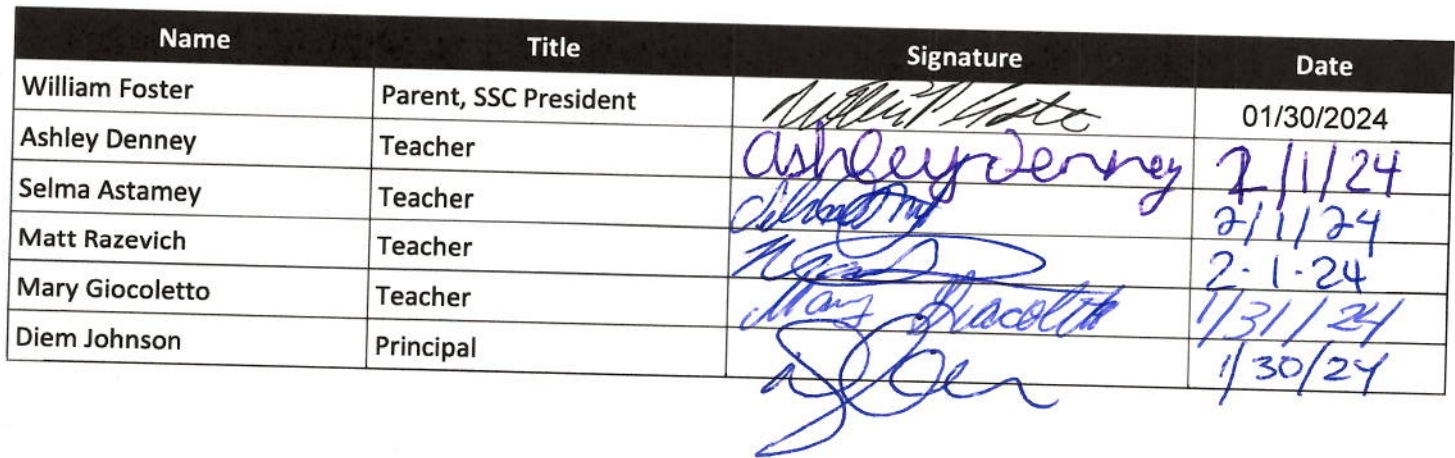 Name Title Signature Date
William Foster Parent, SSC President 01/30/2024
Ashley Denney Teacher Ashley Denney 2/1/24
Selma Astamey Teacher 2/1/24
Matt Razevich Teacher 2-1-24
Mary Giocoletto Teacher Mary Giacoletto 1/31/24
Diem Johnson Principal 1/30/24